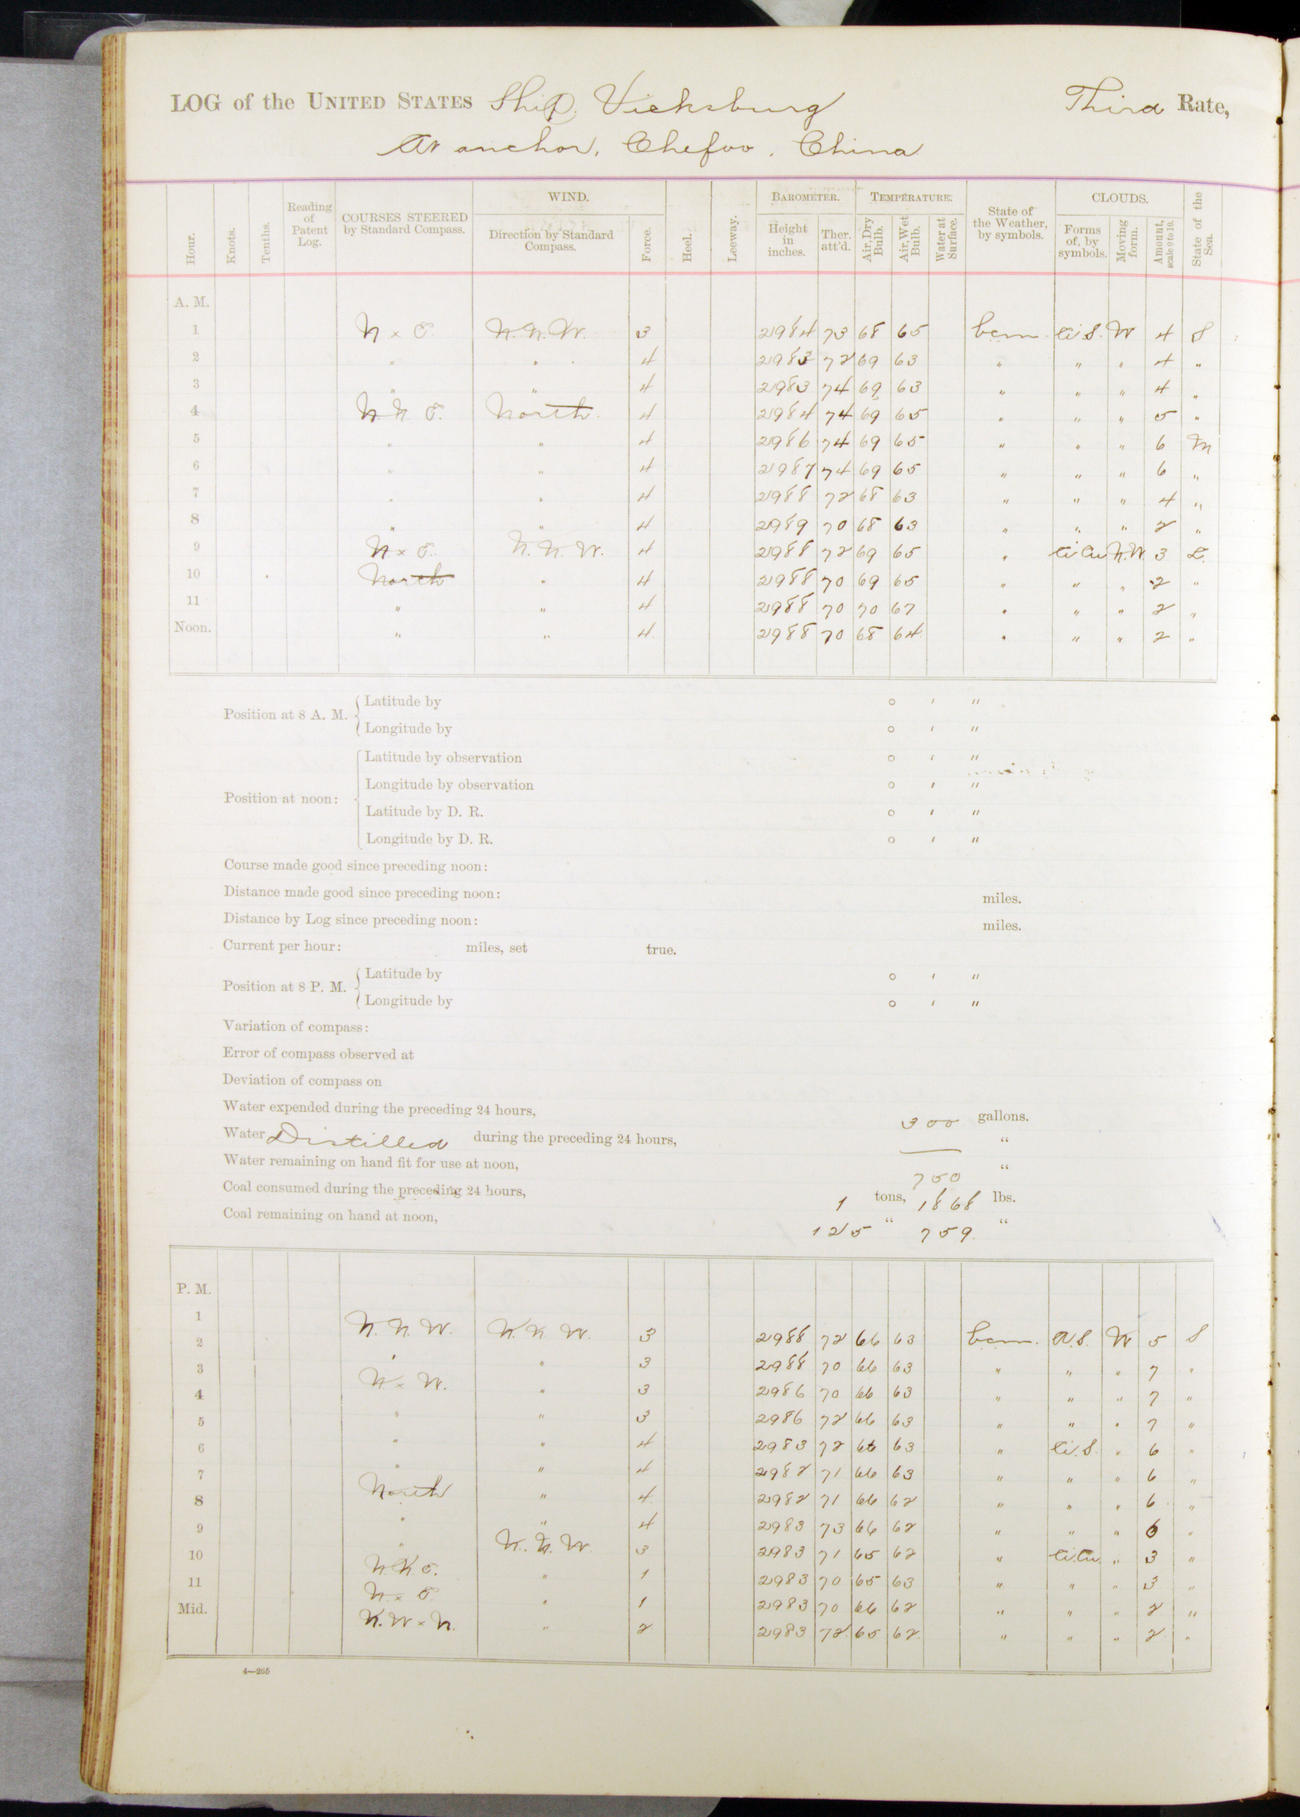 LOG of the UNITED STATES Ship Vicksburg Third Rate,
At anchor, Chefoo, China
Hour. Knots. Tenths. Reading of Patent Log. COURSES STEERED by Standard Compass. WIND. Direction by Standard Compass. Force. Heel. Leeway. BAROMETER. Height in inches. Ther. att'd. TEMPERATURE. Air, Dry Bulb. Air, Wet Bulb. Water at Surface. State of the Weather, by symbols. CLOUDS. Forms of, by symbols. Moving form. Amount, scale 0 to 10. State of the Sea.
A. M.
1 N x E. N.N.W. 3 2984 73 68 65 bcm Ci.S. W 4 S
2 " " 4 2983 72 69 63 " " " 4 "
3 " " 4 2983 74 69 63 " " " 4 "
4 N.N.E. North 4 2984 74 69 65 " " " 5 "
5 " " 4 2986 74 69 65 " " " 6 M
6 " " 4 2987 74 69 65 " " " 6 "
7 " " 4 2988 72 68 63 " " " 4 "
8 " " 4 2989 70 68 63 " " " 2 "
9 N x E. N.N.W. 4 2988 72 69 65 " Ci.Cu N.W 3 L.
10 North " 4 2988 70 69 65 " " " 2 "
11 " " 4 2988 70 70 67 " " " 2 "
Noon. " " 4 2988 70 68 64 " " " 2 "
Position at 8 A. M. Latitude by ° ' "
Longitude by ° ' "
Position at noon: Latitude by observation ° ' "
Longitude by observation ° ' "
Latitude by D. R. ° ' "
Longitude by D. R. ° ' "
Course made good since preceding noon:
Distance made good since preceding noon: miles.
Distance by Log since preceding noon: miles.
Current per hour: miles, set true.
Position at 8 P. M. Latitude by ° ' "
Longitude by ° ' "
Variation of compass:
Error of compass observed at
Deviation of compass on
Water expended during the preceding 24 hours, 300 gallons.
Water Distilled during the preceding 24 hours, — "
Water remaining on hand fit for use at noon, 750 "
Coal consumed during the preceding 24 hours, 1 tons, 1868 lbs.
Coal remaining on hand at noon, 125 " 759 "
P. M.
1 N.N.W. N.N.W. 3 2988 72 66 63 bcm. W 5 S
2 " " 3 2988 70 66 63 " " " 7 "
3 N x W. " 3 2986 70 66 63 " " " 7 "
4 " " 3 2986 72 66 63 " " " 7 "
5 " " 4 2983 72 66 63 " Ci.S. " 6 "
6 " " 4 2982 71 66 63 " " " 6 "
7 North " 4 2982 71 66 62 " " " 6 "
8 " " 4 2983 73 66 62 " " " 6 "
9 " N.N.W. 3 2983 71 65 62 " Ci.Cu " 3 "
10 N.N.E. " 1 2983 70 65 63 " " " 3 "
11 N x E " 1 2983 70 66 62 " " " 2 "
Mid. N.W x N. " 2 2983 72 65 62 " " " 2 "
4—265